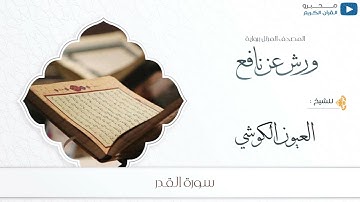 محبرو
القرآن الكريم
المصحف المنزل برواية
ورش عن نافع
للشيخ :
العيون الكوشي
سورة القدر